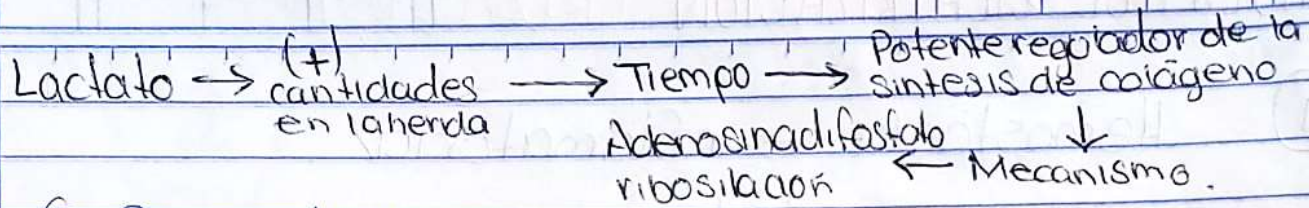 Lactato → (+) cantidades en la herida → Tiempo → Potente regulador de la síntesis de colágeno
↓
Adenosinadifosfato ribosilación ← Mecanismo.